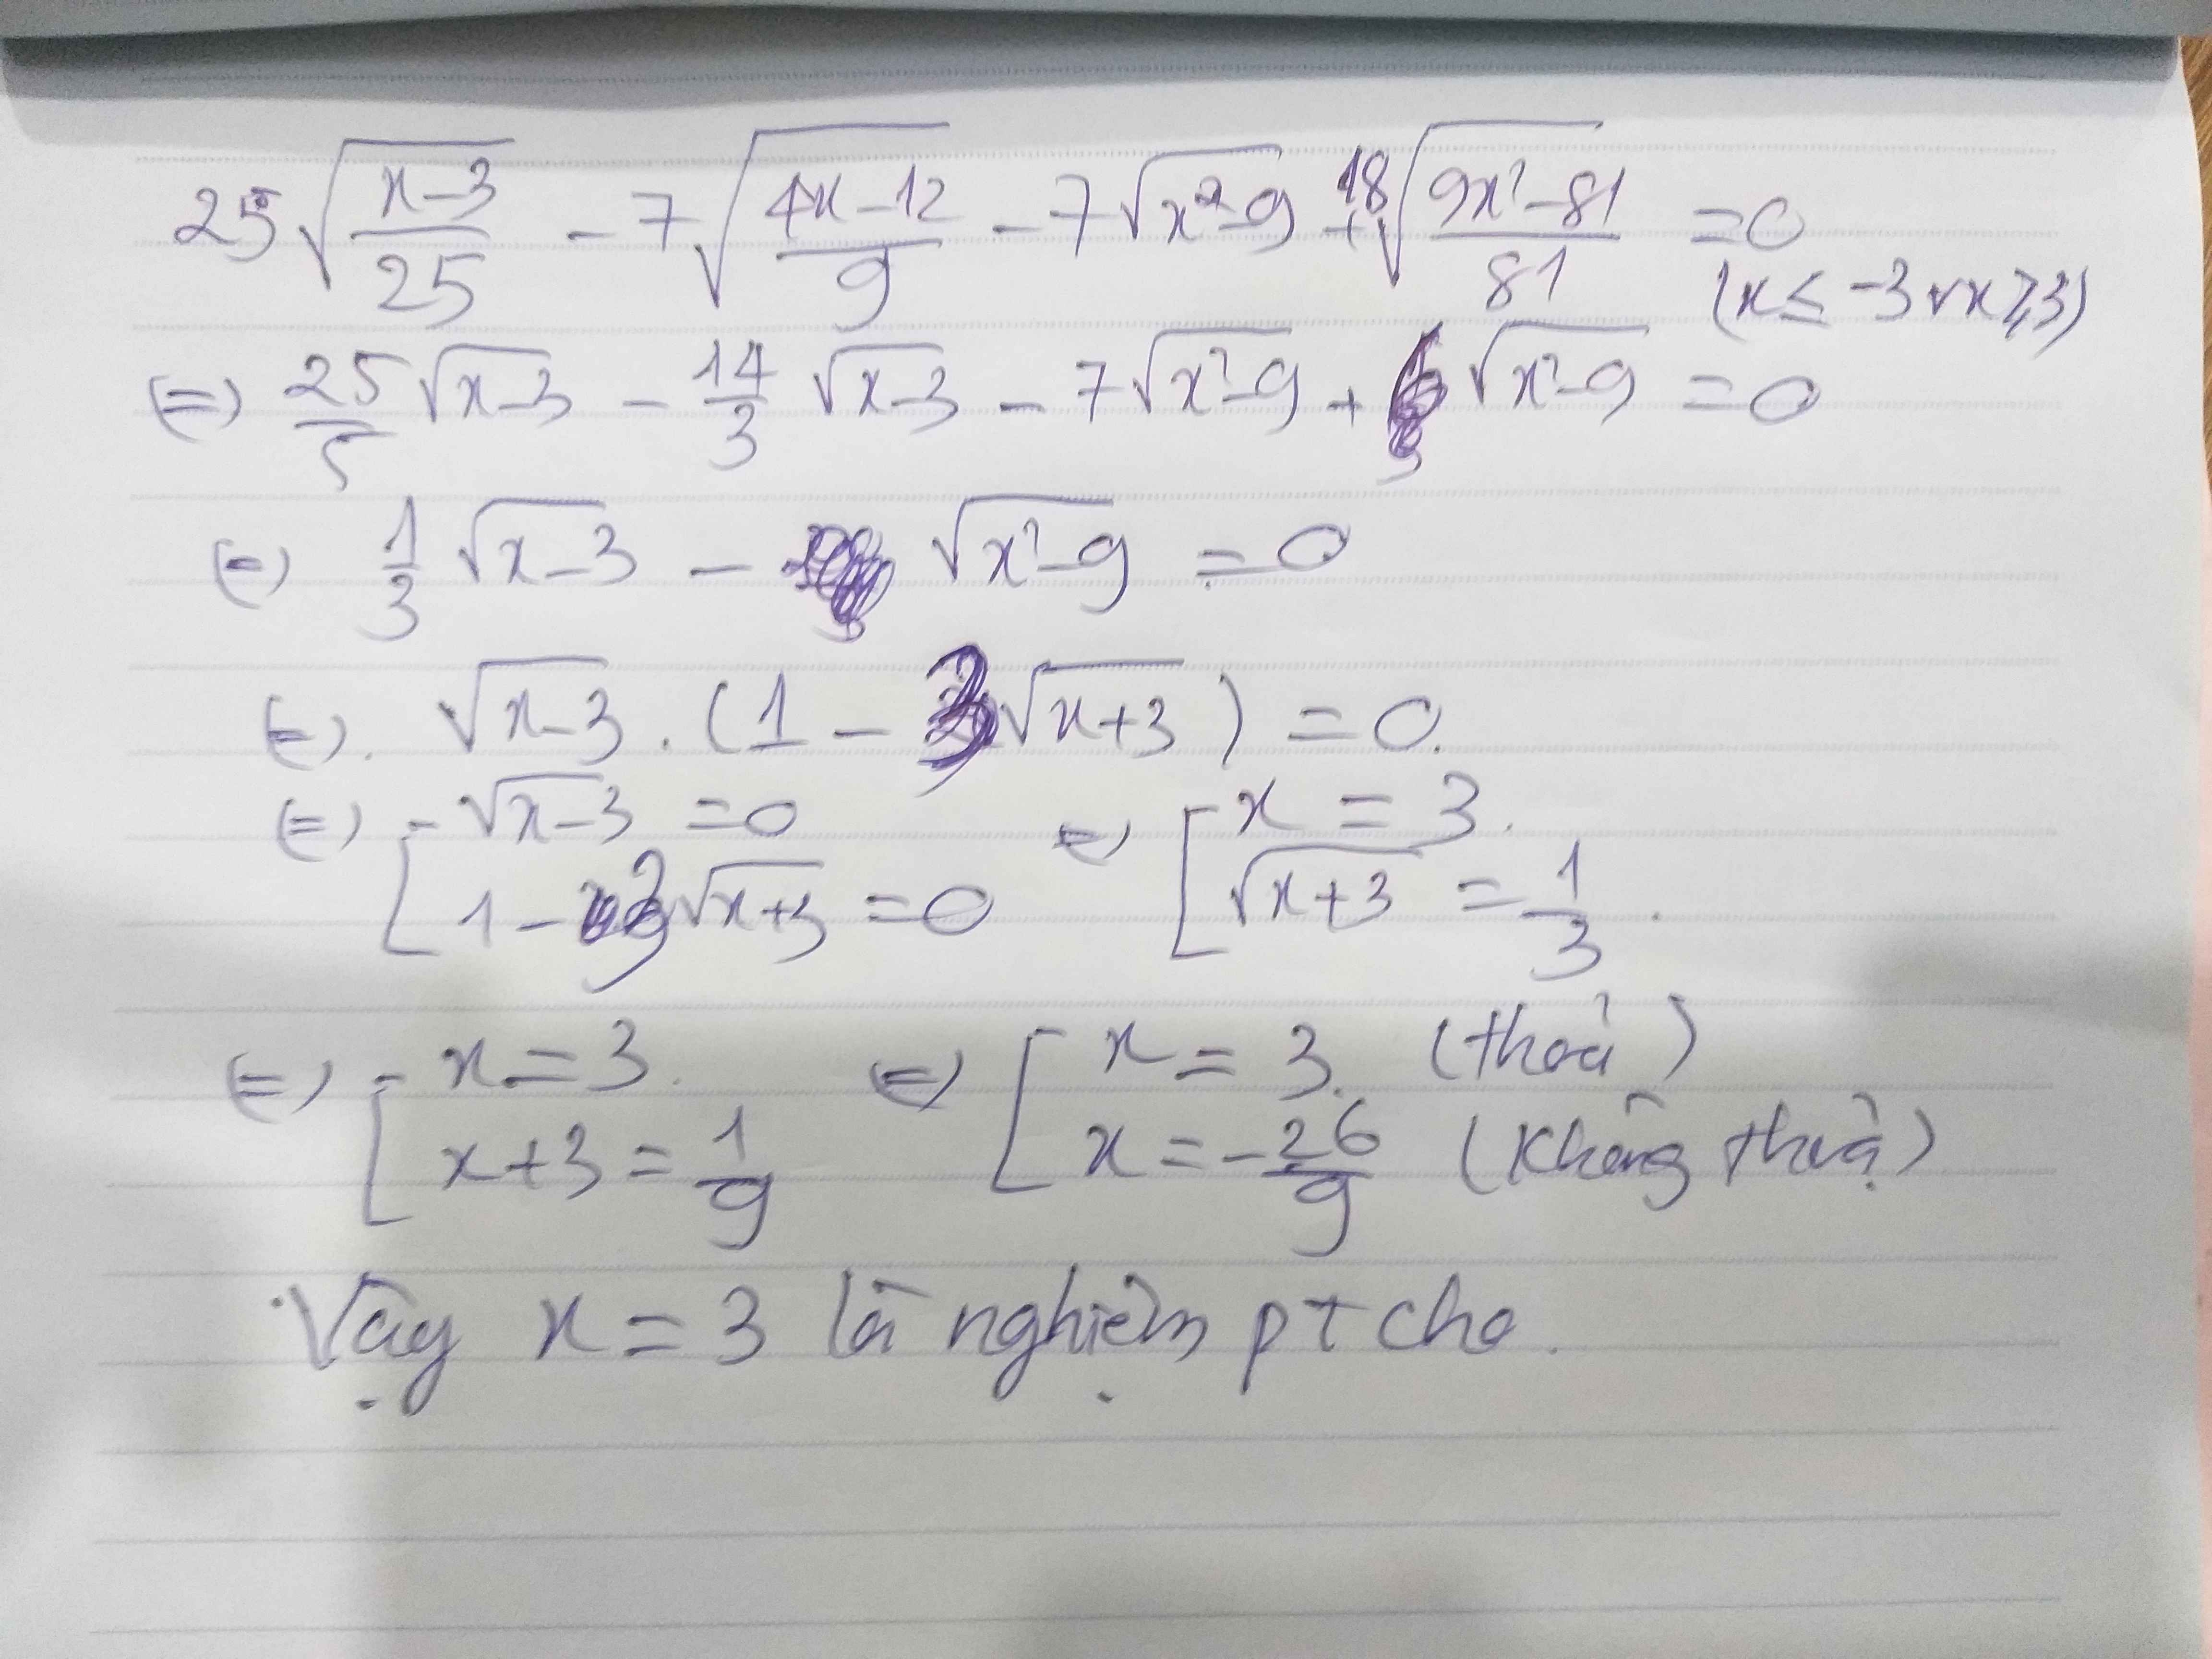 25√((x-3)/25) - 7√((4x-12)/9) - 7√(x²-9) + 18√((9x²-81)/81) = 0
(x ≤ -3 v x ≥ 3)
(=) 25/5 √(x-3) - 14/3 √(x-3) - 7√(x²-9) + 6√(x²-9) = 0
(=) 1/3 √(x-3) - √(x²-9) = 0
(=). √(x-3) . (1 - 3√(x+3)) = 0.
(=) [ √(x-3) = 0 (=) [ x = 3.
1 - 3√(x+3) = 0 √(x+3) = 1/3.
(=) [ x = 3. (=) [ x = 3. (thoả)
x+3 = 1/9 x = -26/9 (không thoả)
Vậy x = 3 là nghiệm pt cho.